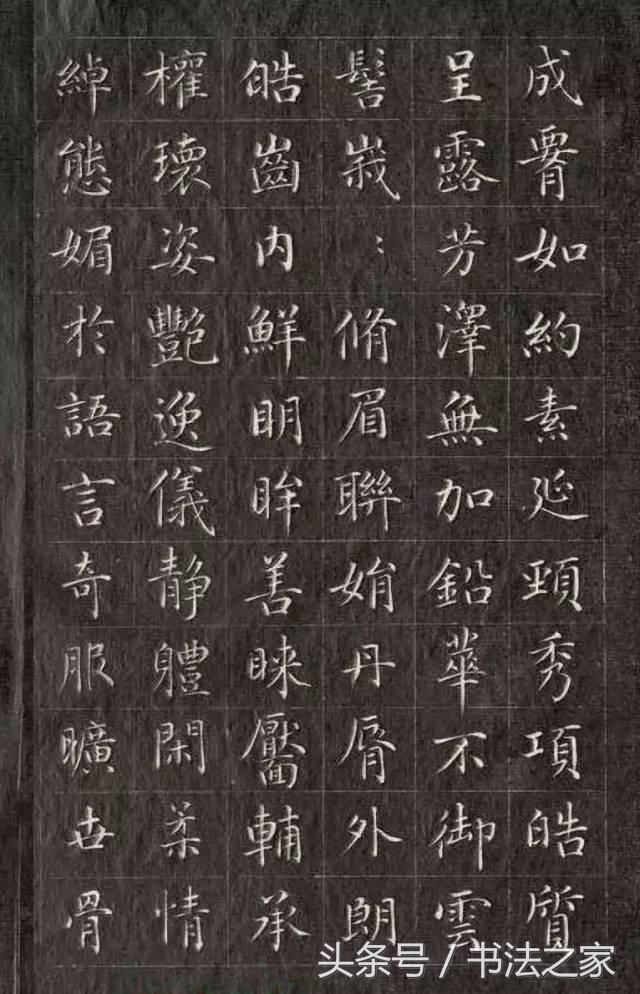 成𦝫如約素延頸秀項皓質
呈露芳澤無加鉛華不御雲
髻峩〻脩眉聯娟丹脣外朗
皓齒內鮮明眸善睞靨輔承
權瓌姿豔逸儀静軆閑柔情
綽態媚於語言奇服曠世骨
头条号 / 书法之家